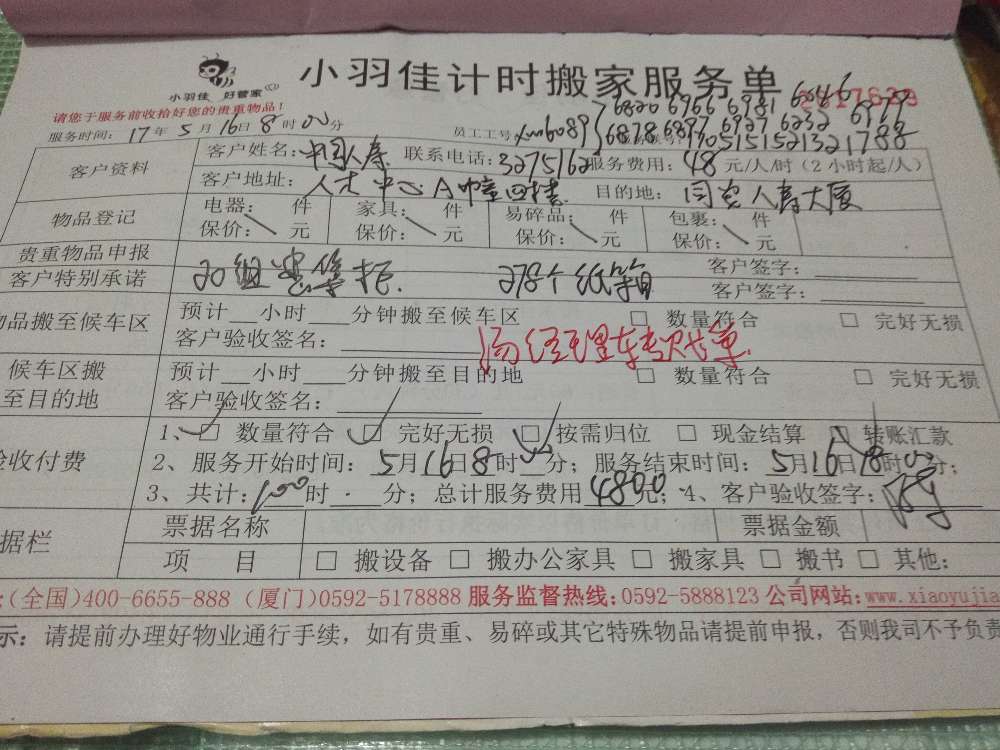 小羽佳计时搬家服务单
小羽佳 好管家
请您于服务前收拾好您的贵重物品!
6820 6966 6981 6046
服务时间: 17年 5月16日8时00分 员工工号: xm6089 6878 6897 6927 6232 6979
客户资料 客户姓名: 中国人寿 联系电话: 3275162 服务费用: 48 元/人/时 (2小时起/人)
客户地址: 人才中心A幢四楼 目的地: 国贸人寿大厦
物品登记 电器: 件 家具: 件 易碎品: 件 包裹: 件
保价: 元 保价: 元 保价: 元 保价: 元
贵重物品申报 客户签字:
客户特别承诺 20组 278个纸箱 客户签字:
物品搬至候车区 预计 小时 分钟搬至候车区 □ 数量符合 □ 完好无损
客户验收签名: 汤经理转账单
候车区搬 预计 小时 分钟搬至目的地 □ 数量符合 □ 完好无损
至目的地 客户验收签名:
1、□ 数量符合 □ 完好无损 □ 按需归位 □ 现金结算 □ 转账汇款
验收付费 2、服务开始时间: 5月16日8时 分; 服务结束时间: 5月16日18时00分;
3、共计: 100时 分; 总计服务费用4800元; 4、客户验收签字:
据栏 票据名称 票据金额
项 目 □ 搬设备 □ 搬办公家具 □ 搬家具 □ 搬书 □ 其他:
:(全国)400-6655-888 (厦门)0592-5178888 服务监督热线:0592-5888123 公司网站:www.xiaoyujia
示: 请提前办理好物业通行手续, 如有贵重、易碎或其它特殊物品请提前申报, 否则我司不予负责